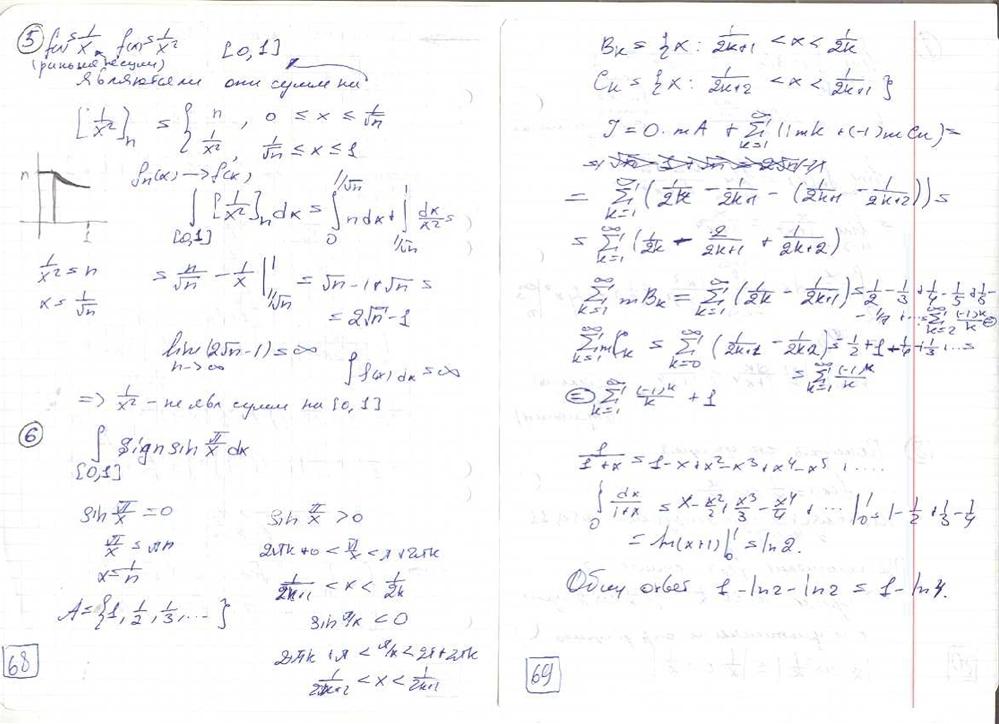 ⑤ f(x)=1/x, f(x)=1/x² [0,1]
являются ли они сумм на
[1/x²]_n = { n , 0 ≤ x ≤ 1/√n
1/x² , 1/√n ≤ x ≤ 1
n f_n(x) → f(x)
∫[0,1] [1/x²]_n dx = ∫_0^{1/√n} n dx + ∫_{1/√n}^1 dx/x² =
1
1/x² = n = n/√n - 1/x |_{1/√n}^1 = √n - 1 + √n =
x = 1/√n = 2√n - 1
lim n→∞ (2√n - 1) = ∞ ∫ f(x) dx = ∞
=> 1/x² - не явл сумм на [0,1]
⑥ ∫[0,1] sign sin π/x dx
sin π/x = 0 sin π/x > 0
π/x = πn 2πk + 0 < π/x < π + 2πk
x = 1/n 1/(2k+1) < x < 1/2k
A = {1, 1/2, 1/3, ... } sin π/x < 0
2πk + π < π/x < 2π + 2πk
1/(2k+2) < x < 1/(2k+1)
68
B_k = {x: 1/(2k+1) < x < 1/2k
C_k = {x: 1/(2k+2) < x < 1/(2k+1)}
J = 0·mA + Σ_{k=1}^∞ (1mk + (-1)mCk) =
= Σ_{k=1}^∞ (1/2k - 1/(2k+1) - (1/(2k+1) - 1/(2k+2))) =
= Σ_{k=1}^∞ (1/2k - 2/(2k+1) + 1/(2k+2))
Σ_{k=1}^∞ mB_k = Σ_{k=1}^∞ (1/2k - 1/(2k+1)) = 1/2 - 1/3 + 1/4 - 1/5 + 1/6 -
- 1/7 + ... = Σ_{k=2}^∞ (-1)^k/k =
Σ_{k=1}^∞ mC_k = Σ_{k=0}^∞ (1/(2k+1) - 1/(2k+2)) = 1/2 + 1 + 1/4 + 1/3 ... =
= Σ_{k=1}^∞ (-1)^k/k
= Σ_{k=1}^∞ (-1)^k/k + 1
1/(1+x) = 1 - x + x² - x³ + x⁴ - x⁵ + ....
∫_0^1 dx/(1+x) = x - x²/2 + x³/3 - x⁴/4 + ... |_0^1 = 1 - 1/2 + 1/3 - 1/4
= ln(x+1)|_0^1 = ln2.
Общий ответ 1 - ln2 - ln2 = 1 - ln4.
69